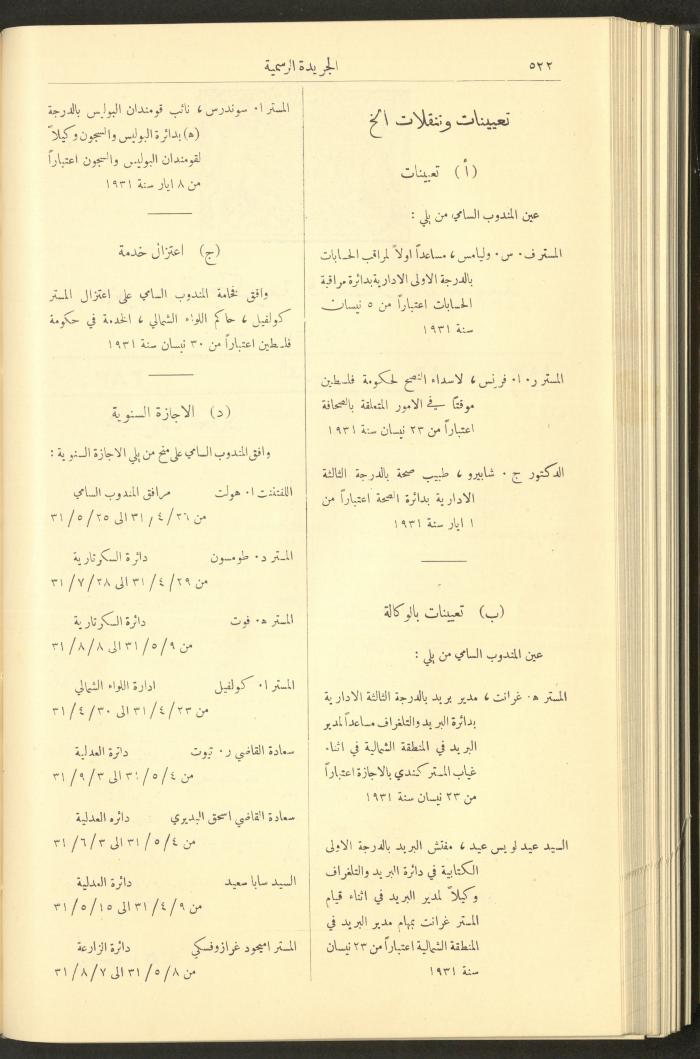 ٥٢٢
الجريدة الرسمية
تعيينات وتنقلات الخ
(أ) تعيينات
عين المندوب السامي من يلي :
المستر ف. س. وليامس، مساعداً اولاً لمراقب الحسابات
بالدرجة الاولى الادارية بدائرة مراقبة
الحسابات اعتباراً من ٥ نيسان
سنة ١٩٣١
المستر ر. ا. فرنس، لاسداء النصح لحكومة فلسطين
موقتاً في الامور المتعلقة بالصحافة
اعتباراً من ٢٣ نيسان سنة ١٩٣١
الدكتور ج. شابيرو، طبيب صحة بالدرجة الثالثة
الادارية بدائرة الصحة اعتباراً من
١ ايار سنة ١٩٣١
(ب) تعيينات بالوكالة
عين المندوب السامي من يلي :
المستر ه. غرانت، مدير بريد بالدرجة الثالثة الادارية
بدائرة البريد والتلغراف مساعداً لمدير
البريد في المنطقة الشمالية في اثناء
غياب المستر كندي بالاجازة اعتباراً
من ٢٣ نيسان سنة ١٩٣١
السيد عيد لويس عيد، مفتش البريد بالدرجة الاولى
الكتابية في دائرة البريد والتلغراف
وكيلاً لمدير البريد في اثناء قيام
المستر غرانت بمهام مدير البريد في
المنطقة الشمالية اعتباراً من ٢٣ نيسان
سنة ١٩٣١
المستر ا. سوندرس، نائب قومندان البوليس بالدرجة
(ه) بدائرة البوليس والسجون وكيلاً
لقومندان البوليس والسجون اعتباراً
من ٨ ايار سنة ١٩٣١
(ج) اعتزال خدمة
وافق فخامة المندوب السامي على اعتزال المستر
كولفيل، حاكم اللواء الشمالي، الخدمة في حكومة
فلسطين اعتباراً من ٣٠ نيسان سنة ١٩٣١
(د) الاجازة السنوية
وافق المندوب السامي على منح من يلي الاجازة السنوية :
اللفتننت ا. هولت مرافق المندوب السامي
من ٢٦/٤/٣١ الى ٢٥/٥/٣١
المستر د. طومسون دائرة السكرتارية
من ٢٩/٤/٣١ الى ٢٨/٧/٣١
المستر ه. فوت دائرة السكرتارية
من ٩/٥/٣١ الى ٨/٨/٣١
المستر ا. كولفيل ادارة اللواء الشمالي
من ٢٣/٤/٣١ الى ٣٠/٤/٣١
سعادة القاضي ر. تيوت دائرة العدلية
من ٤/٥/٣١ الى ٣/٩/٣١
سعادة القاضي اسحق البديري دائره العدلية
من ٤/٥/٣١ الى ٣/٦/٣١
السيد سابا سعيد دائرة العدلية
من ٩/٤/٣١ الى ١٥/٥/٣١
المستر اميحود غرازوفسكي دائرة الزراعة
من ٨/٥/٣١ الى ٧/٨/٣١